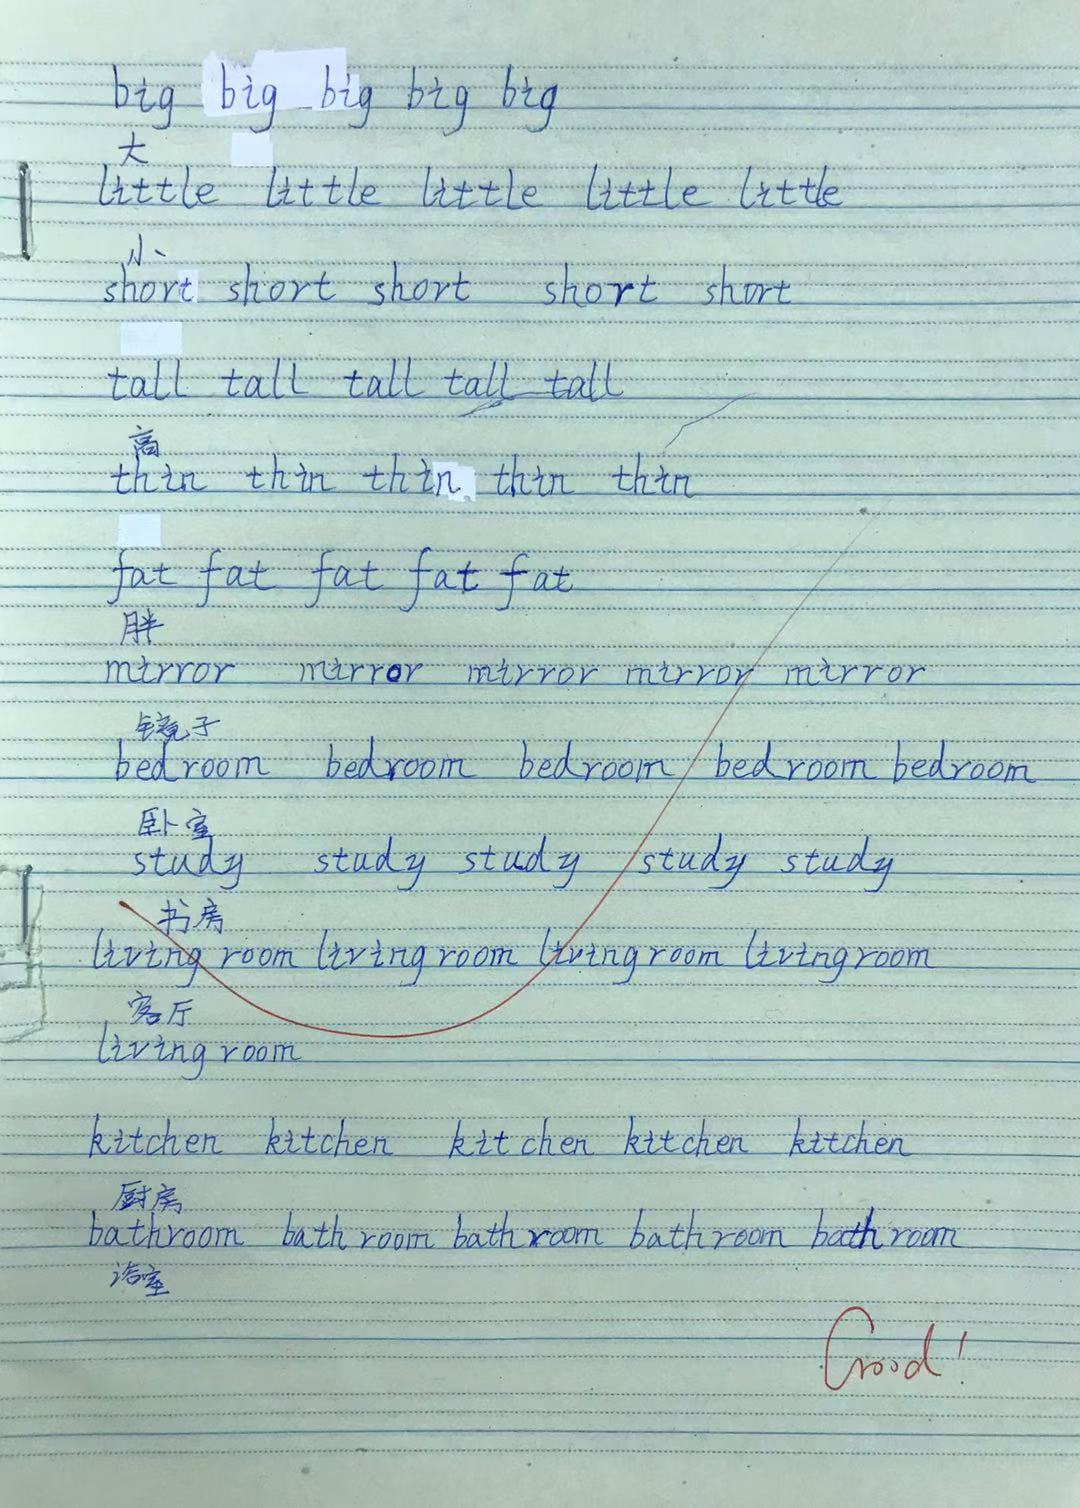 big big big big big
大
little little little little little
小
short short short short short
tall tall tall tall tall
高
thin thin thin thin thin
fat fat fat fat fat
胖
mirror mirror mirror mirror mirror
镜子
bedroom bedroom bedroom bedroom bedroom
卧室
study study study study study
书房
living room living room living room living room
客厅
living room
kitchen kitchen kitchen kitchen kitchen
厨房
bathroom bathroom bathroom bathroom bathroom
浴室
Good!